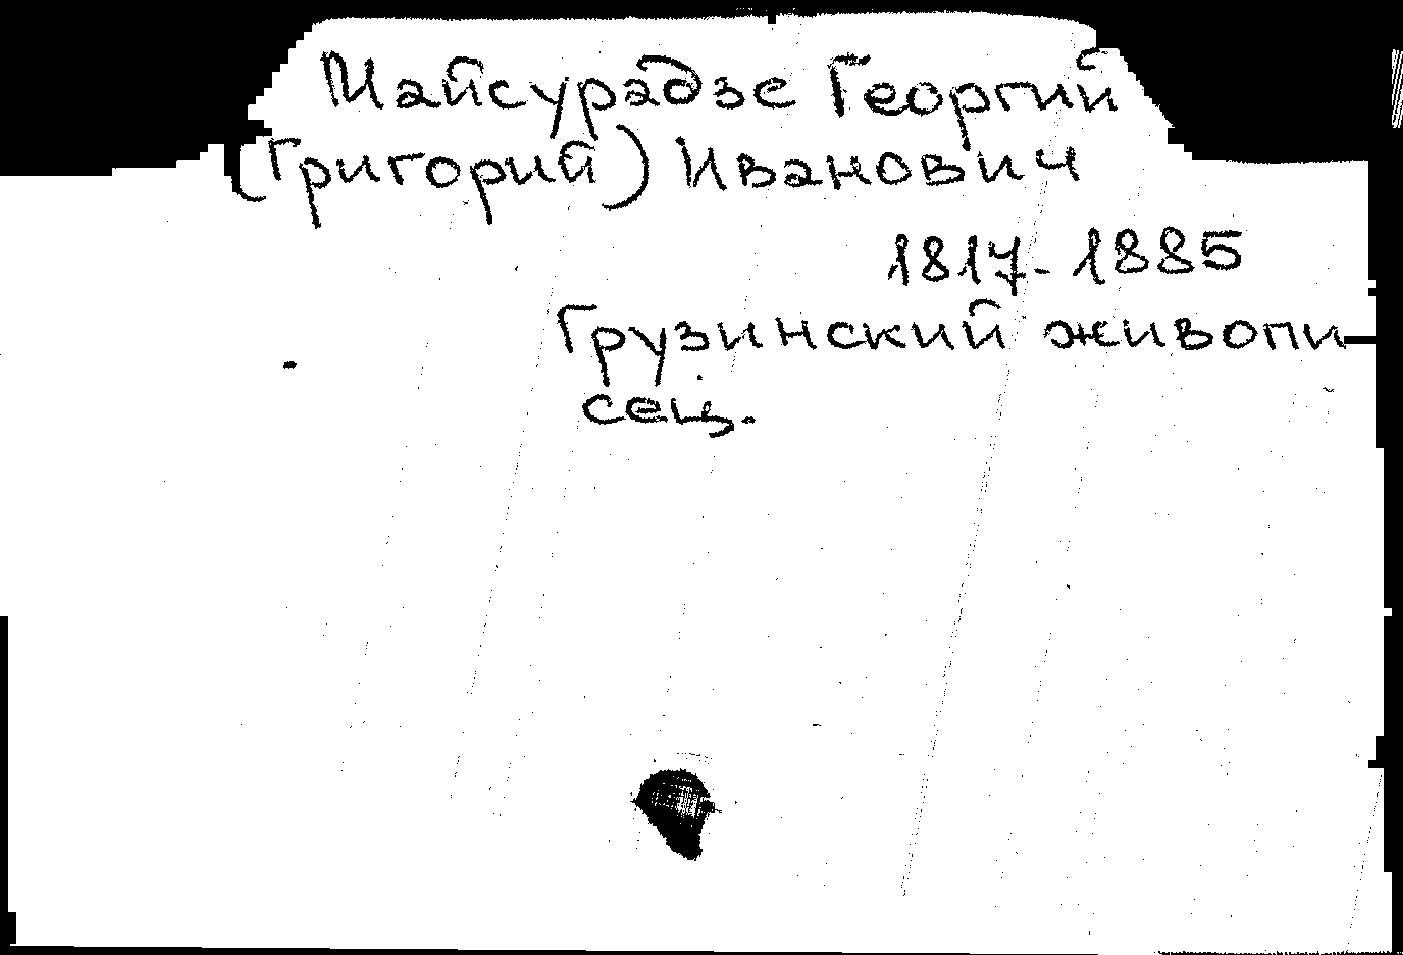 Майсурадзе Георгий
(Григорий) Иванович
1817-1885
Грузинский живопи-
сец.